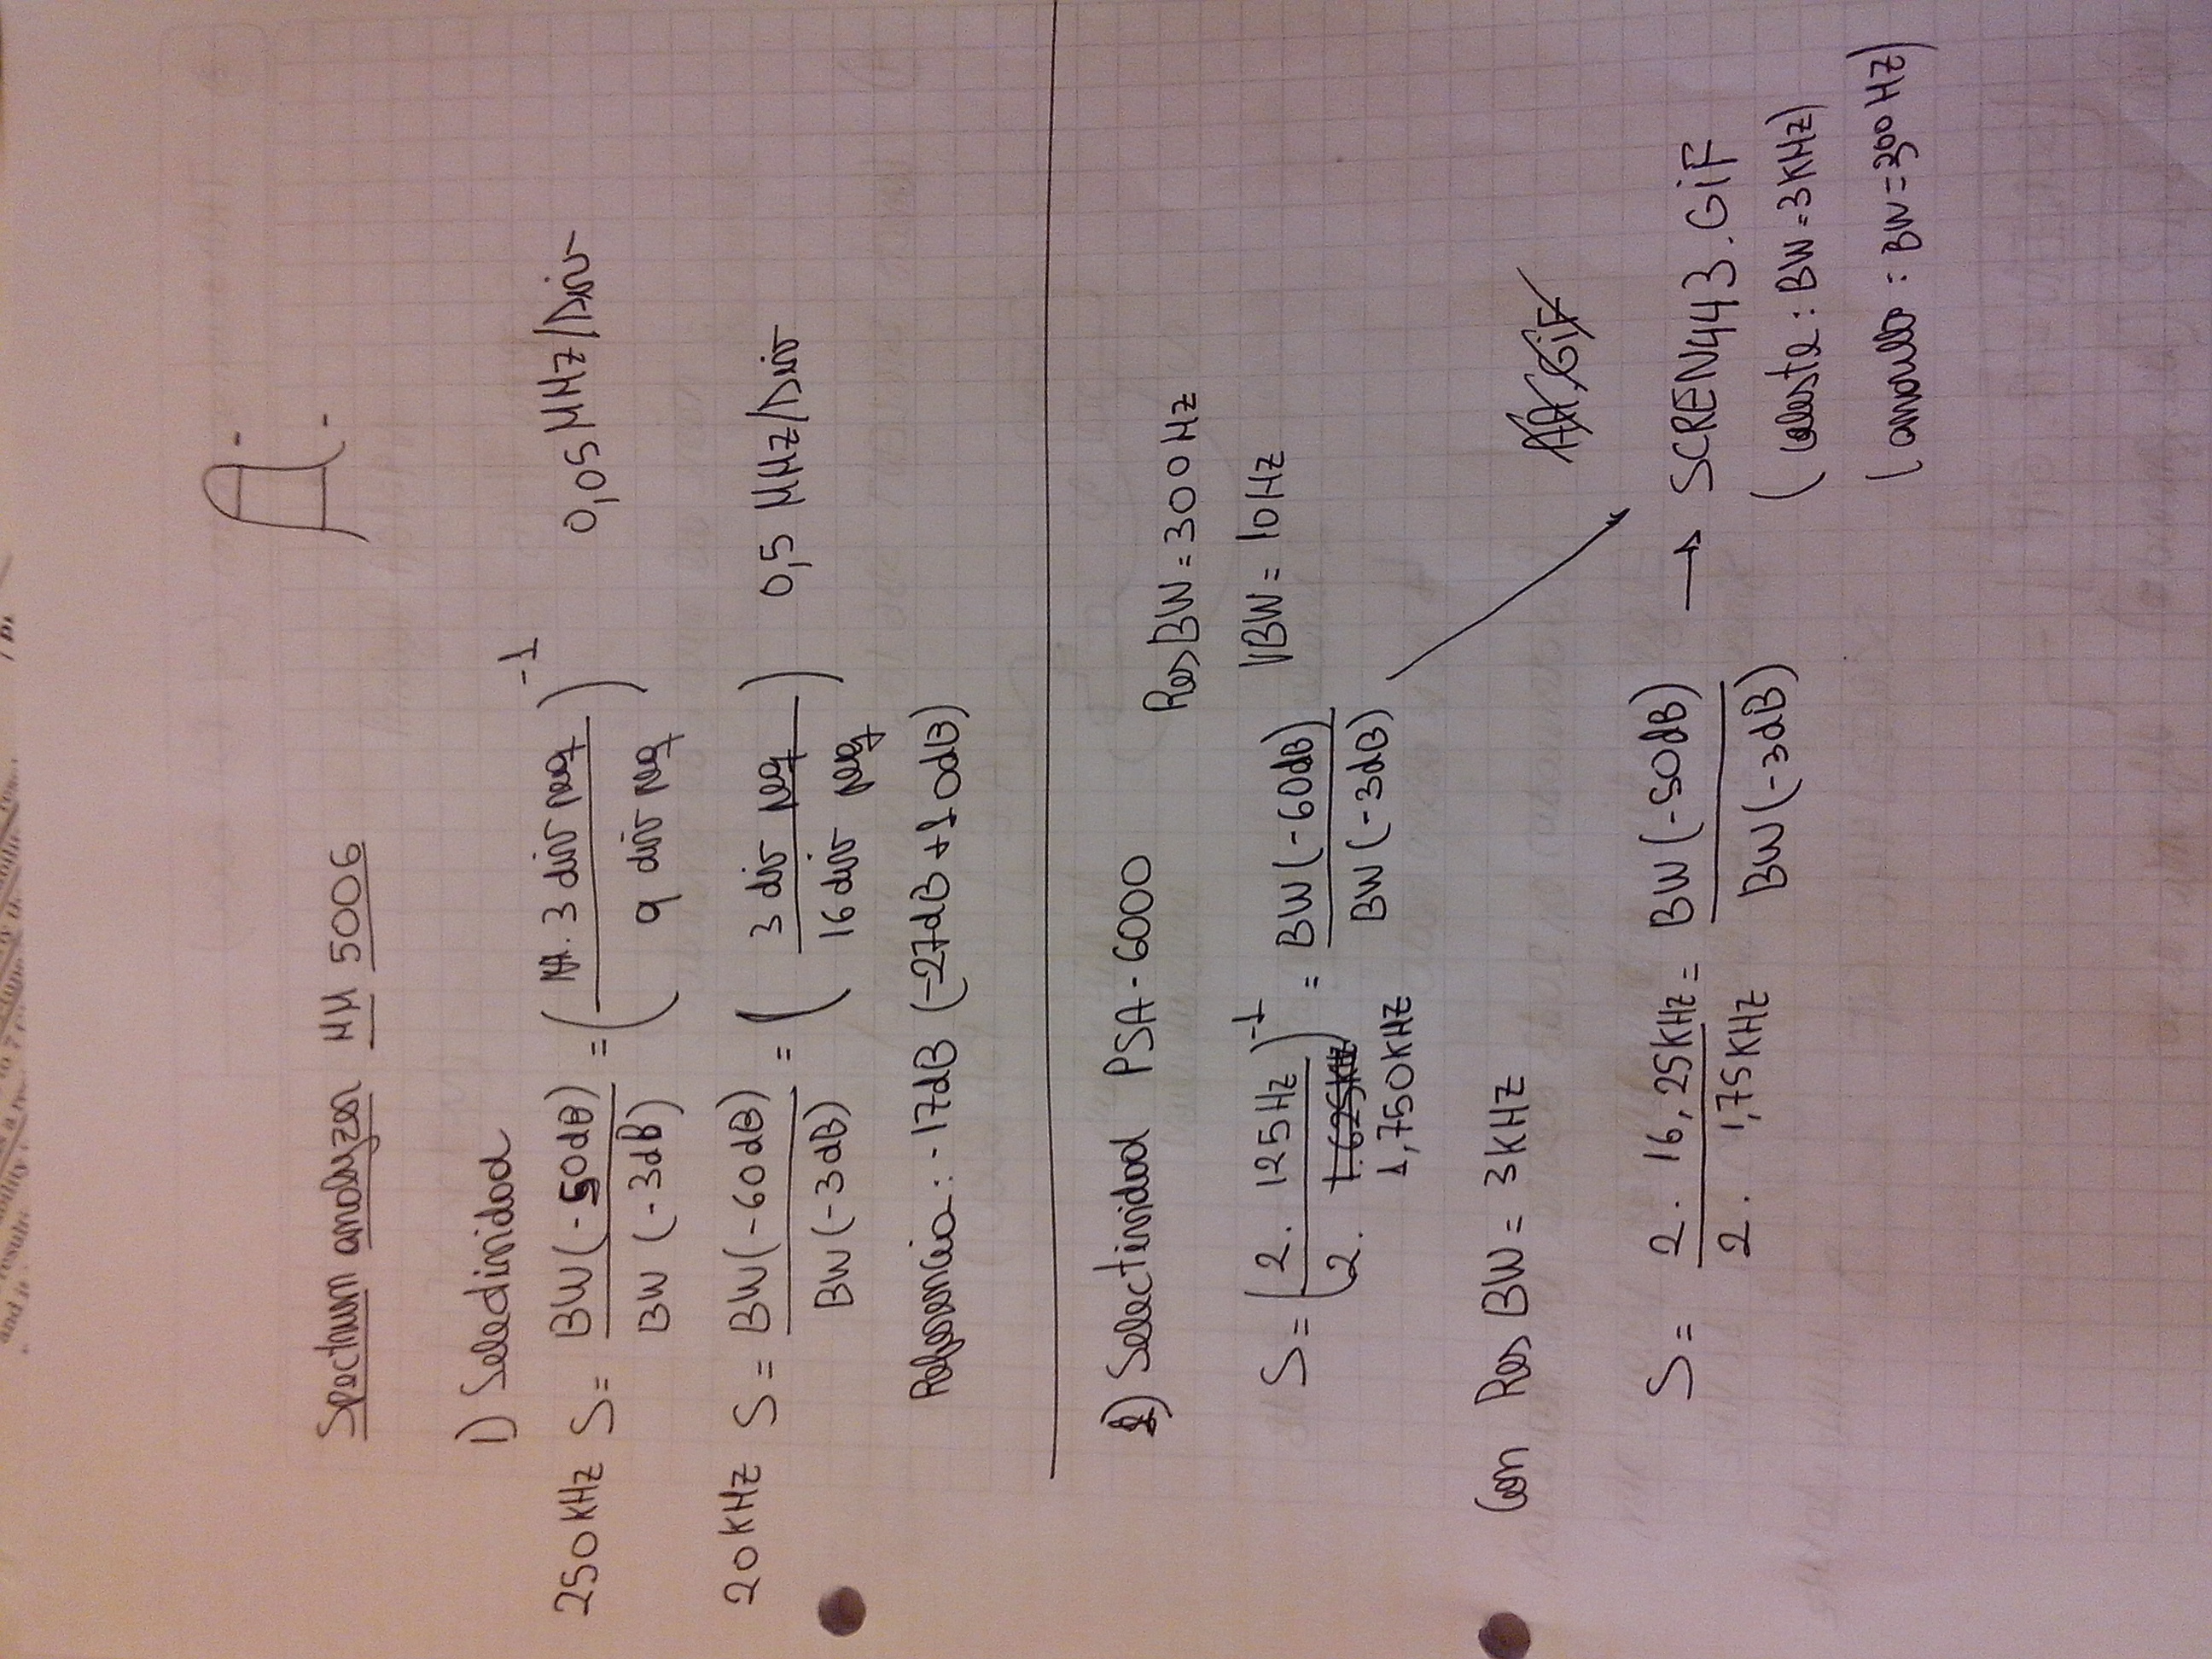 Spectrum analyzer HM 5006
1) Selectividad
250KHz S= BW(-50dB) / BW(-3dB) = ( 3 div peq / 9 div peq )^-1 0,05MHz/Div
20KHz S= BW(-60dB) / BW(-3dB) = ( 3 div peq / 16 div peq ) 0,5 MHz/Div
Referencia: -17dB (-27dB+10dB)
2) Selectividad PSA-6000
Res BW=300Hz
S= ( 2. 125Hz / 2. 1.625KHz 1,750KHz )^-1 = BW(-60dB) / BW(-3dB)
VBW= 10Hz
Con Res BW= 3KHz
AA.GiF
S= 2. 16,25KHz / 2. 1,75KHz = BW(-50dB) / BW(-3dB) → SCREN443.GiF
(celeste: BW=3KHz)
(amarillo: BW=300HZ)